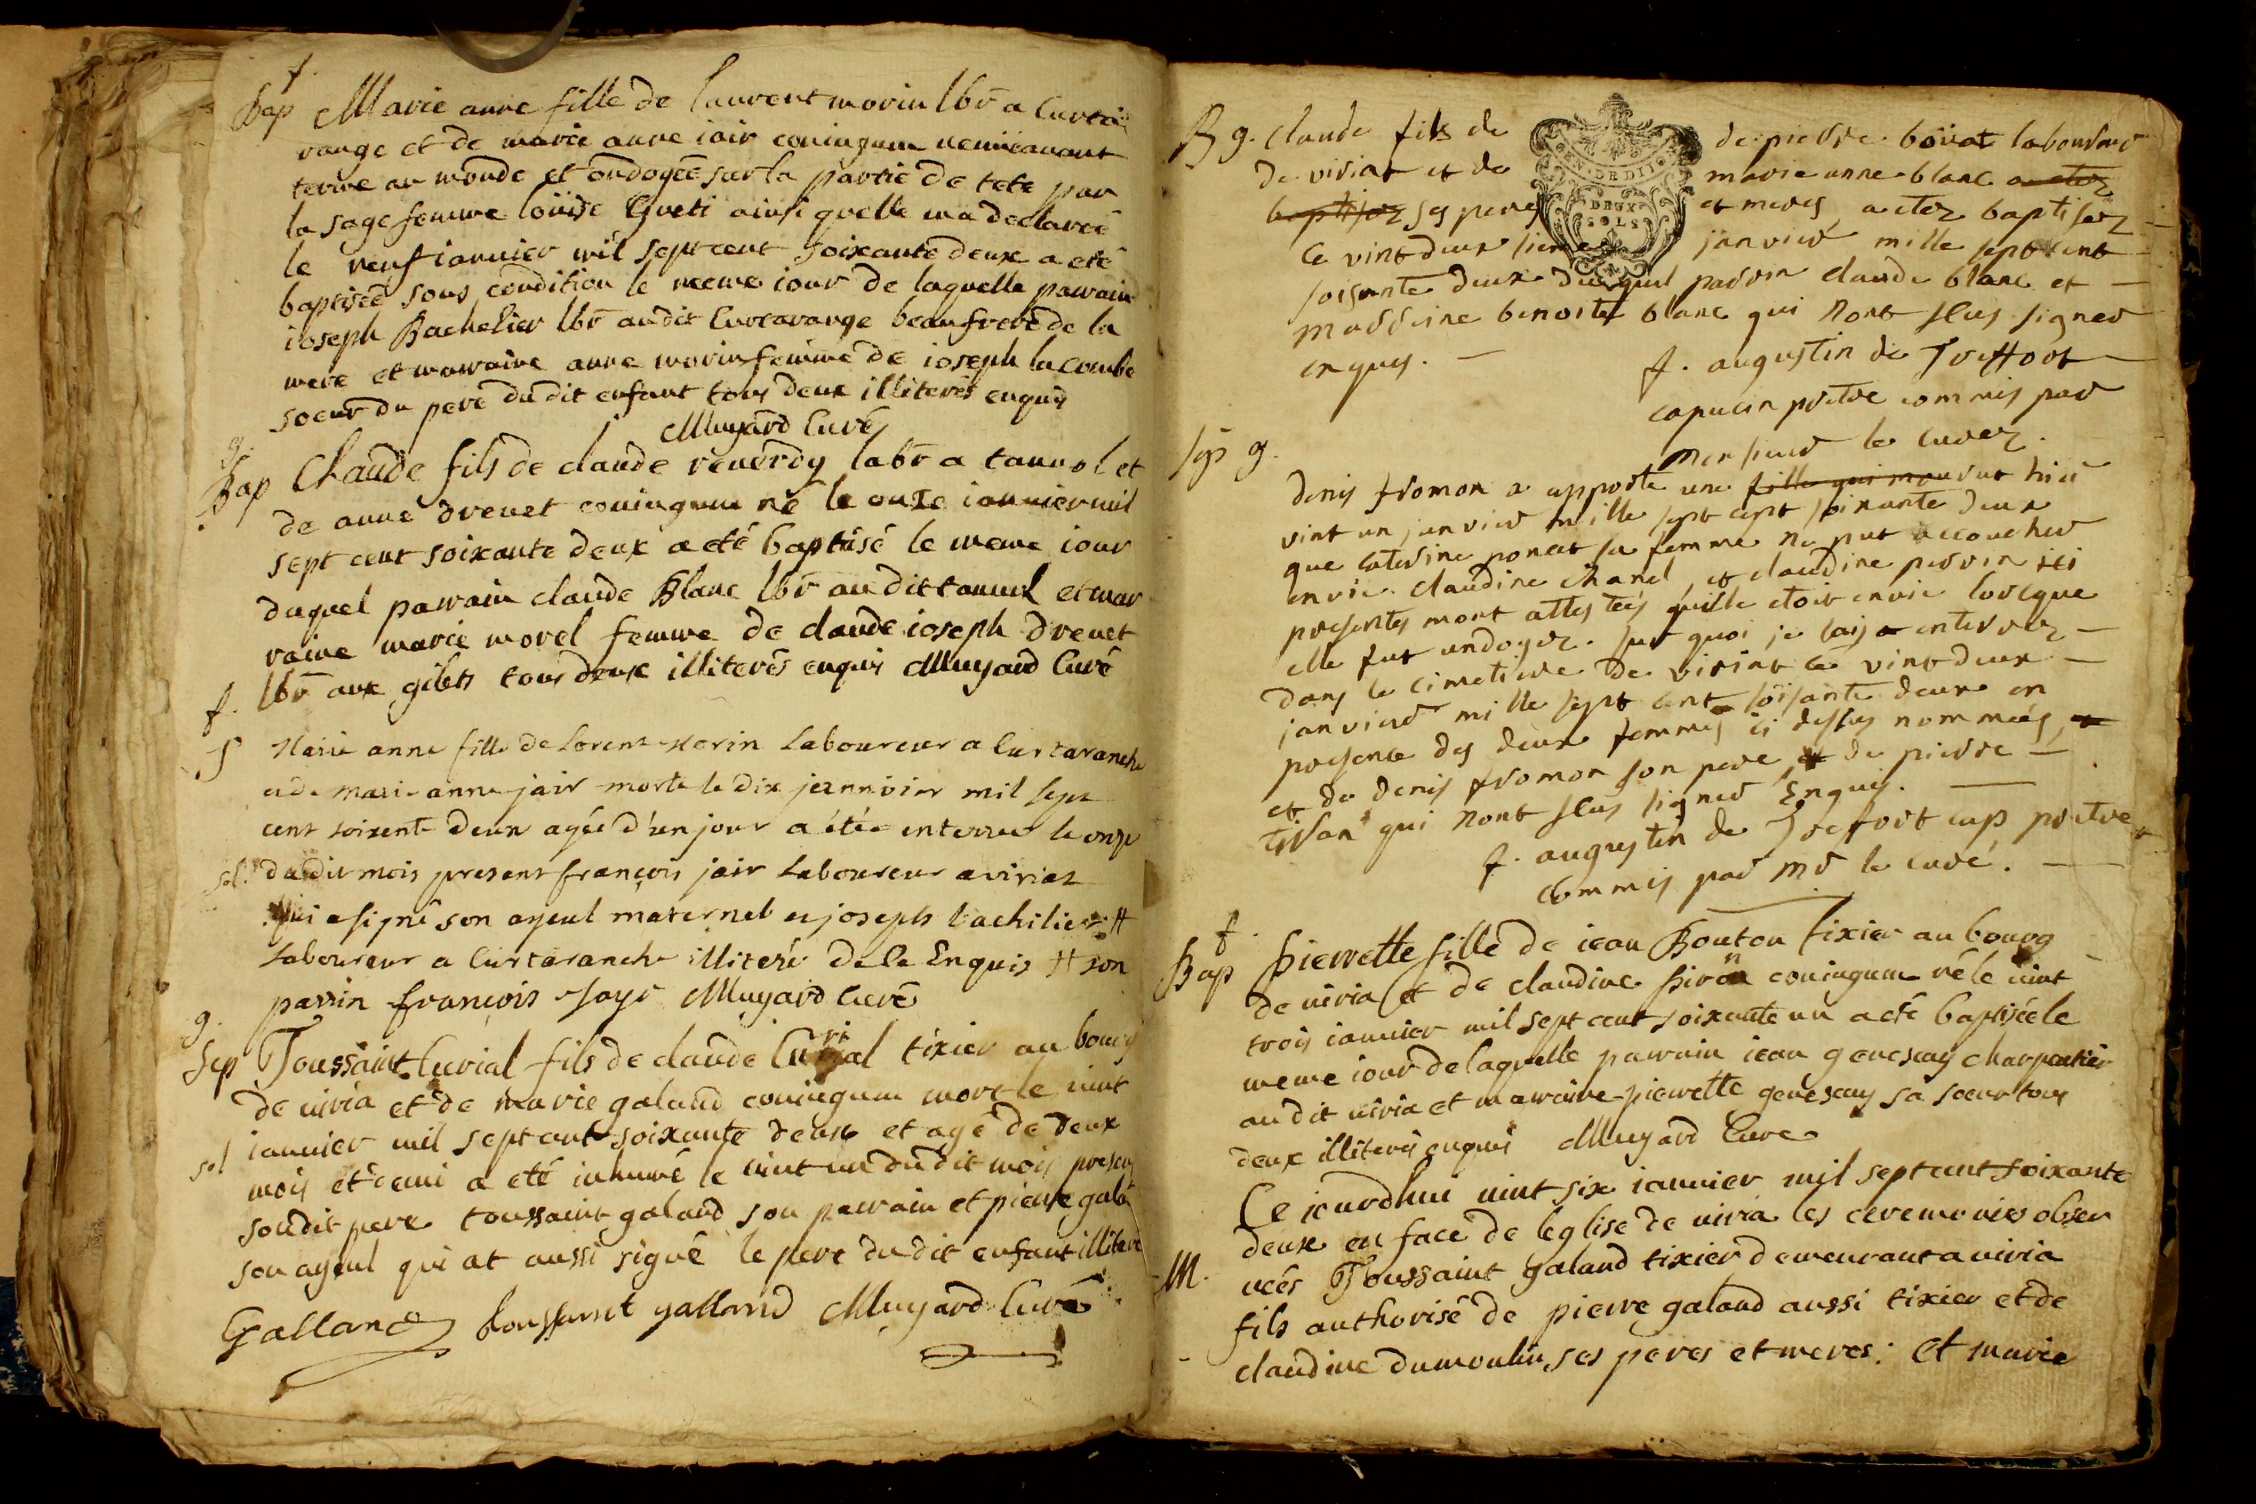 f.
Bap Marie anne fille de laurent morin lbr a Curta
range et de marie anne iair coniugum neuïe avant
terme au monde et ondoyeé sur la partie de tete par
la sage femme loüise Gueti ainsi quelle ma declareé
le neuf ianvier mil sept cent soixante deux a eté
baptiseé sous condition le meme iour de laquelle parrain
ioseph Bachelier lbr audit Curtarange beaufrere de la
mere et marraine anne morin femme de ioseph lacombe
soeur du pere dudit enfant tous deux illiterés enquis
Muyard Curé
g.
Bap Claude fils de claude reverdy labr a tannol et
de anne drevet coniugum né le onze ianvier mil
sept cent soixante deux a eté baptisé le meme iour
duquel parrain claude Blanc lbr audit tannol et mar
raine marie morel femme de claude ioseph drevet
lbr aux gilets tous deux illiterés enquis Muyard Curé
f.
S Marie anne fille de Lorent Morin Laboureur a Curtaranche
et de Marie anne jair morte le dix jeannvier mil sept
cent soixente deux agée d'un jour a étée interrée le onze
sol. dudit mois present françois jair Laboureur a viriat
qui a signé son ayeul maternel et joseph bachilier #
Laboureur a Curtaranche illiteré de ce Enquis # son
parrin françois Jayr Muyard Curé
g.
Sep Toussaint Curial fils de claude Curial tixier au bourg
de viria et de marie galand coniugum mort le vint
sol ianvier mil sept cent soixante deux et agé de deux
mois et demi a eté inhumé le vint un dudit mois presens
sondit pere toussaint galand son parrain et pierre galand
son ayeul qui at aussi signé le pere dudit enfant illiteré
Galland toussaint galland Muyard Curé
B g. Claude fils de de pierre boüat laboureur
de viriat et de marie anne blanc a etez
baptisez ses peres et meres a etez baptisez
ce vint deux sieme janvier mille sept cent
soisente deux duquel parrin claude blanc et
marreine benoite blanc qui nont sceus signer
enquis.
f. augustin de Treffort
capucin pretre commis par
monsieur le curez.
Sep g.
denis fromon a apporte une fille qui mourut hier
vint un janvier mille sept cept soixante deux
que caterine poncet sa femme ne put accoucher
en vie. claudine chanel, et claudine perrin ici
presentes mont attesteés qu'ille etoit en vie lorsque
elle fut undoyez. sur quoi je lais enterrez
dans le cimetiere de viriat ce vint deux
janvier mille sept cent soisante deux en
presence des deux femmes ci dessus nommeés, et
et de denis fromon son pere et de pierre
tissan qui nont sceus signer Enquis.
f. augustin de Treffort cap pretre
commis par Mr le curé.
f.
Bap Pierrette fille de iean Bouton tixier au bourg
de viria et de claudine Piron coniugum né le vint
trois ianvier mil sept cent soixante un a eté baptiseé le
meme iour de laquelle parrain iean genesuay charpentier
audit viria et marraine pierrette genesuay sa soeur tous
deux illiterés enquis Muyard Curé
Ce iourdhui vint six ianvier mil sept cent soixante
deux en face de leglise de viria les ceremonies obser
M. veés Toussaint galand tixier demeurant a viria
fils authorisé de pierre galand aussi tixier et de
claudine dumoulin ses peres et meres: et marie